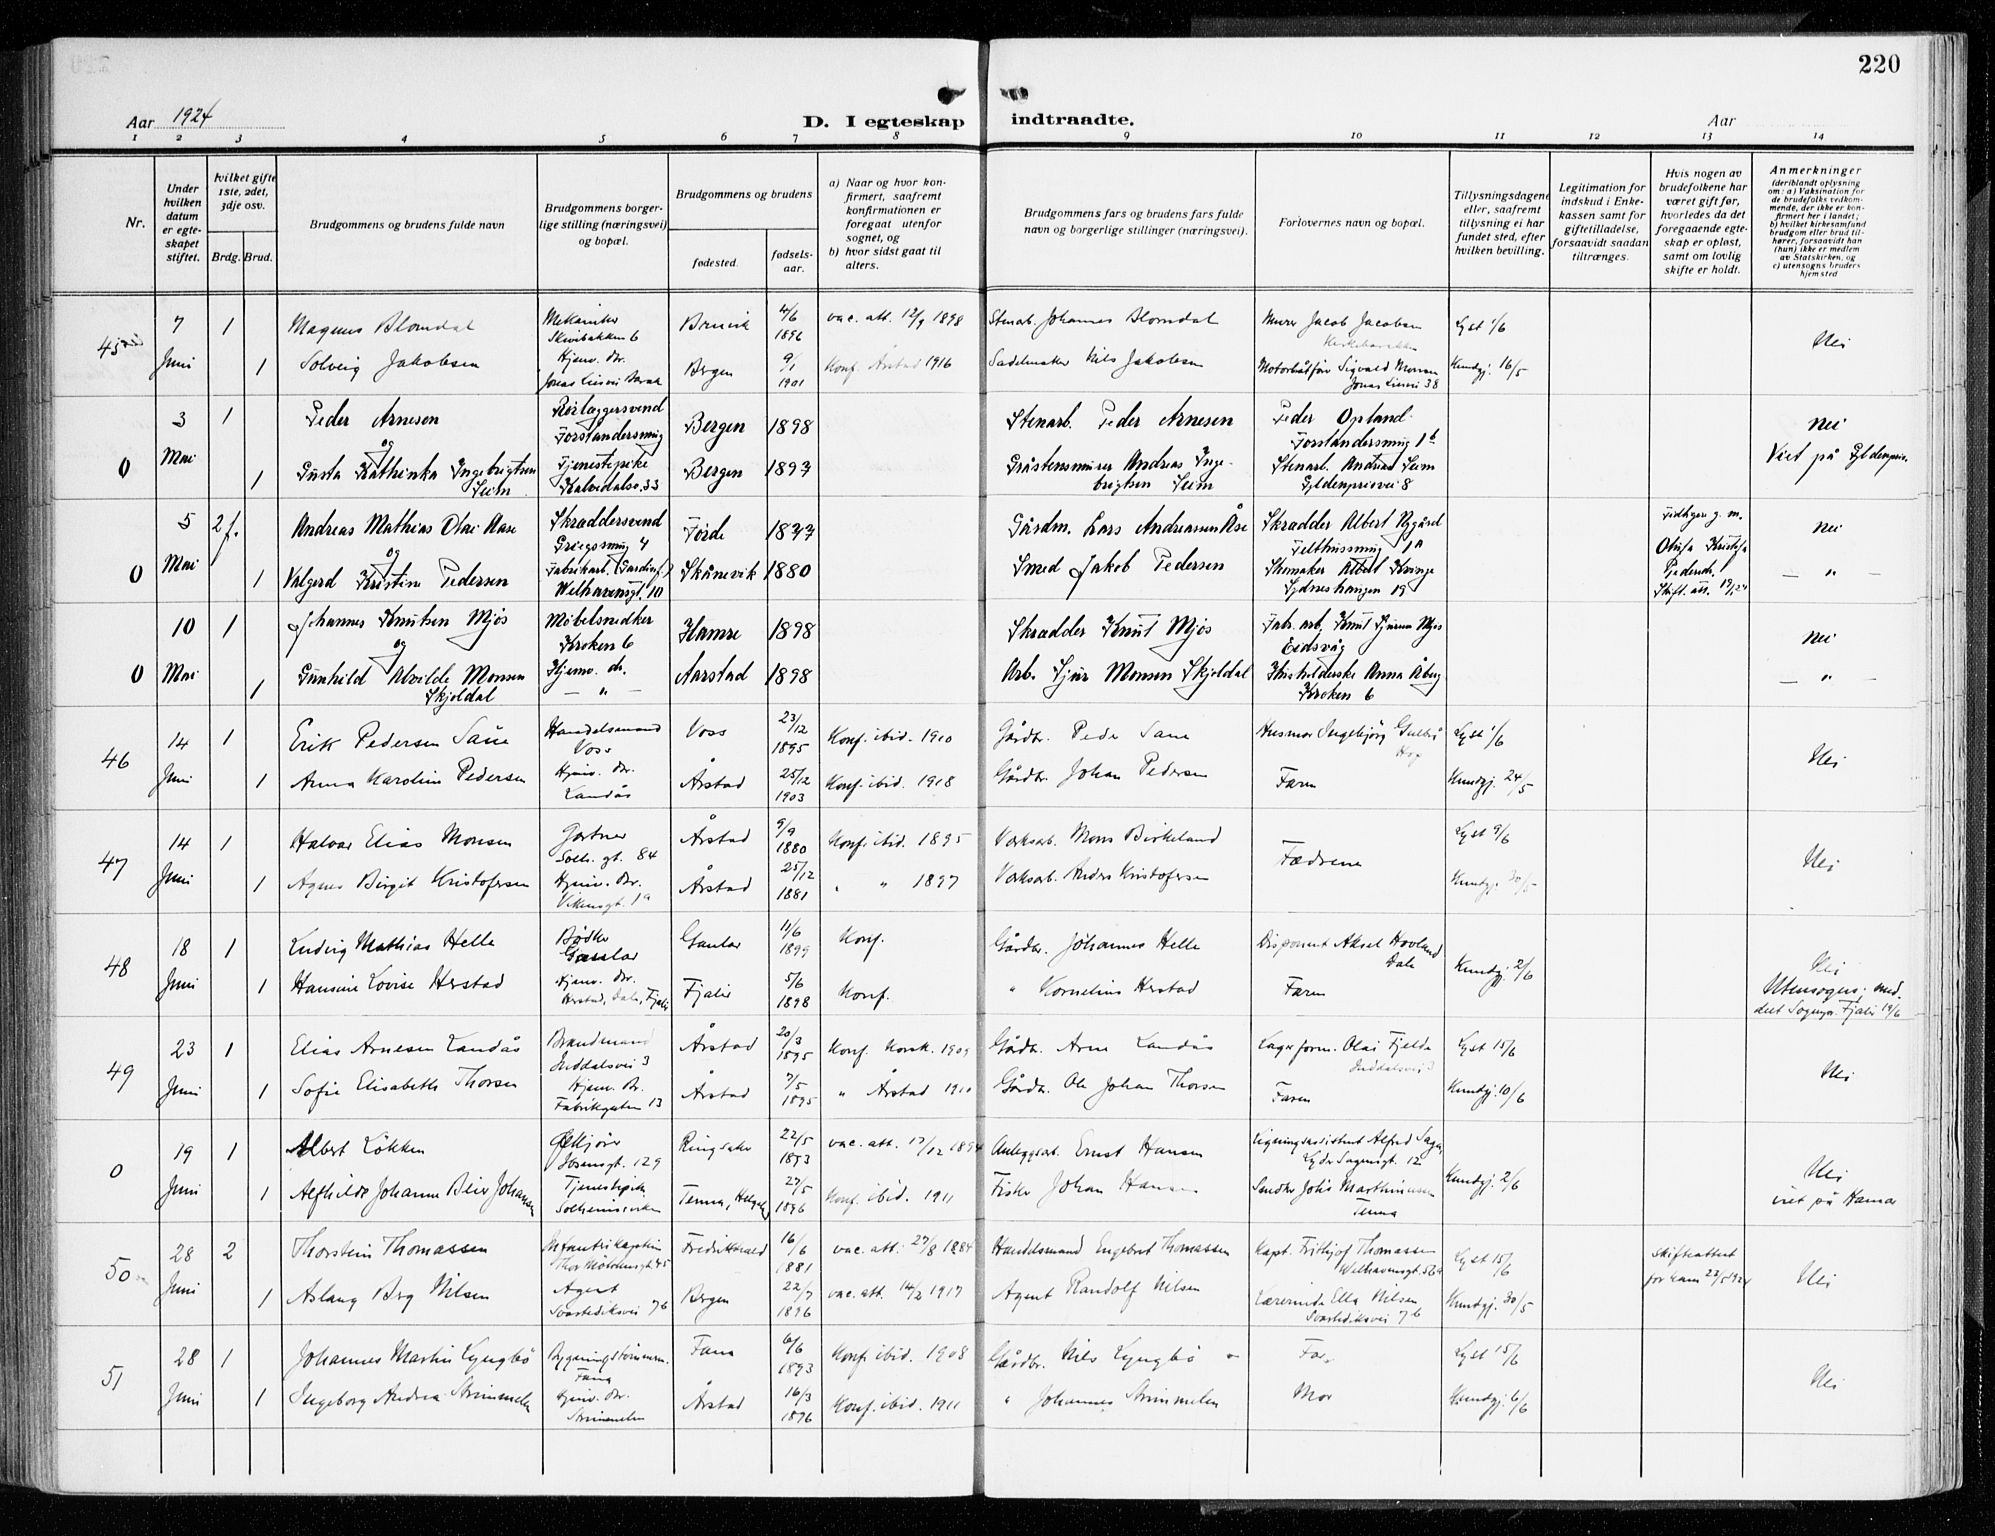 220
Aar 1924
D. I egteskap indtraadte.
Aar
1 2 3 4 5 6 7 8 9 10 11 12 13 14
Nr.
Under hvilken datum er egteskapet stiftet.
hvilket gifte 1ste, 2det, 3dje osv.
Brdg. Brud.
Brudgommens og brudens fulde navn
Brudgommens borgerlige stilling (næringsvei) og bopæl.
Brudgommens og brudens
fødested.
fødselsaar.
a) Naar og hvor konfirmert, saafremt konfirmationen er foregaat utenfor sognet, og
b) hvor sidst gaat til alters.
Brudgommens fars og brudens fars fulde navn og borgerlige stillinger (næringsvei).
Forlovernes navn og bopæl.
Tillysningsdagene eller, saafremt tillysning ei har fundet sted, efter hvilken bevilling.
Legitimation for indskud i Enkekassen samt for giftetilladelse, forsaavidt saadan tiltrænges.
Hvis nogen av brudefolkene har været gift før, hvorledes da det foregaaende egteskap er opløst, samt om lovlig skifte er holdt.
Anmerkninger
(deriblandt oplysning om: a) Vaksination for de brudefolks vedkommende, der ikke er konfirmert her i landet; b) hvilket kirkesamfund brudgom eller brud tilhører, forsaavidt han (hun) ikke er medlem av Statskirken, og c) utensogns bruders hjemsted
45 7 1 Magnus Blomdal Mekaniker Bruvik 4/6 1896 vac. att. 12/9 1898 Stenarb. Johannes Blomdal Murer Jacob Jacobsen Lyst 1/6 Nei
Juni 1 Solveig Jakobsen Hjemv. dr. Bergen 9/1 1901 Konf. Årstad 1916 Sadelmaker Nils Jakobsen Motorbåtfør. Sigvald Monsen Jonas Liesvei 38 Kundgj. 16/5
0 3 1 Peder Arnesen Rørlæggersvend Forstandersmug Bergen 1898 Stenarb. Peder Arnesen Peder Opland Forstandersmug 1b Nei
Mai og
1 Gusta Kathinka Ingebrigtsen Seim Tjenestepike Kalvedalsv. 33 Bergen 1897 Gråstensmurer Andreas Ingebrigtsen Seim Stenarb. Andreas Seim Gyldenprisvei 8 Viet på Gyldenpris
0 5 2 f. Andreas Mathias Olai Aase Skræddersvend Griegsmug 4 Førde 1877 Gårdm. Lars Andreassen Åse Skrædder Albert Nygård Felthusmug 1A Nei
Mai og
1 Valgerd Kristine Pedersen Fabrikarb. Welhavensgt. 10 Skånevik 1880 Smed Jakob Pedersen Skomaker Albert Kvinge Sydneshaugen 19 Tidligere g. m. Kristofa Pedersdr. Skift. att. — " —
0 10 1 Johannes Knutsen Mjøs Møbelsnedker Kroken 6 Hamre 1898 Skrædder Knut Mjøs Fabr. arb. Knut Mjøs Eidsvåg Nei
Mai og
1 Gunhild Alvilde Monsen Skjoldal Hjemv. dr. — " — Aarstad 1898 Arb. Sjur Monsen Skjoldal Husholderske Anna Åberg Kroken 6 — " —
46 14 1 Erik Pedersen Saue Handelsmand Voss Voss 23/12 1895 Konf. ibid. 1910 Gårdbr. Peder Saue Husmor Ingebjørg Hop Lyst 1/6 Nei
Juni 1 Anna Karoline Pedersen Hjemv. dr. Landås Årstad 25/12 1903 Konf. ibid. 1918 Gårdbr. Johan Pedersen Faren Kundgj. 24/5
47 14 1 Halvar Elias Monsen Gartner Solh. gt. 84 Årstad 9/9 1880 Konf. ibid. 1895 Verksarb. Mons Birkeland Fædrene Lyst 9/6 Nei
Juni 1 Agnes Birgit Kristofersen Hjemv. dr. Vikensgt. 1a Årstad 25/12 1881 " " 1897 Verksarb. Anders Kristofersen Kundgj. 30/5
48 18 1 Ludvig Mathias Helle Bødker Gaular Gaular 11/6 1899 Konf. Gårdbr. Johannes Helle Disponent Aksel Hovland Dale Kundgj. 2/6 Nei
Juni 1 Hansine Lovise Herstad Hjemv. dr. Herstad, Dale, Fjaler Fjaler 5/6 1898 Konf. " Kornelius Herstad Faren Utensogns. med. delt Sogepr. Fjaler 19/6
49 23 1 Elias Arnesen Landås Brandmand Inddalsvei 3 Årstad 20/3 1895 Konf. Korsk. 1909 Gårdbr. Arne Landås Lagerform. Olai Fjelde Inddalsvei 3 Lyst 15/6 Nei
Juni 1 Sofie Elisabeth Thorsen Hjemv. dr. Fabrikgaten 13 Årstad 7/5 1895 " Årstad 1910 Gårdbr. Ole Johan Thorsen Faren Kundgj. 10/6
0 19 1 Albert Løkken Ibsensgt. 129 Ringsaker 22/5 1893 vac. att. 17/12 1894 Anlæggsarb. Ernst Hansen Ligningsassistent Alfred Lyder Sagensgt. 12 Kundgj. 2/6 Nei
Juni 1 Alfhilde Johanne Beier Johansen Tjenestepike Solheimsviken Tenna, Helgel. 27/5 1896 Konf. ibid. 1911 Fisker Johan Hansen Marthinussen Tenna viet på Hamar
50 28 2 Thorstein Thomassen Infanterikaptein Fredrikshald 16/6 1881 vac. att. 27/8 1884 Handelsmand Engebret Thomassen Kapt. Fritjof Thomassen Welhavensgt. 56a Lyst 15/6 Skifteattest for ham 22/5 1924 Nei
Juni 1 Aslaug Berg Nilsen Agent Svartediksvei 76 Bergen 22/7 1896 vac. att. 14/2 1917 Agent Randolf Nilsen Lærerinde Ella Nilsen Svartediksvei 76 Kundgj. 30/5
51 28 1 Johannes Martin Lyngbø Bygningstømmerm. Fana Fana 6/6 1893 Konf. ibid. 1908 Gårdbr. Nils Lyngbø Far Lyst 15/6 Nei
Juni 1 Ingeborg Andrea Strimmelen Hjemv. dr. Strimmelen Årstad 16/3 1896 Konf. ibid. 1911 " Johannes Strimmelen Mor Kundgj. 6/6